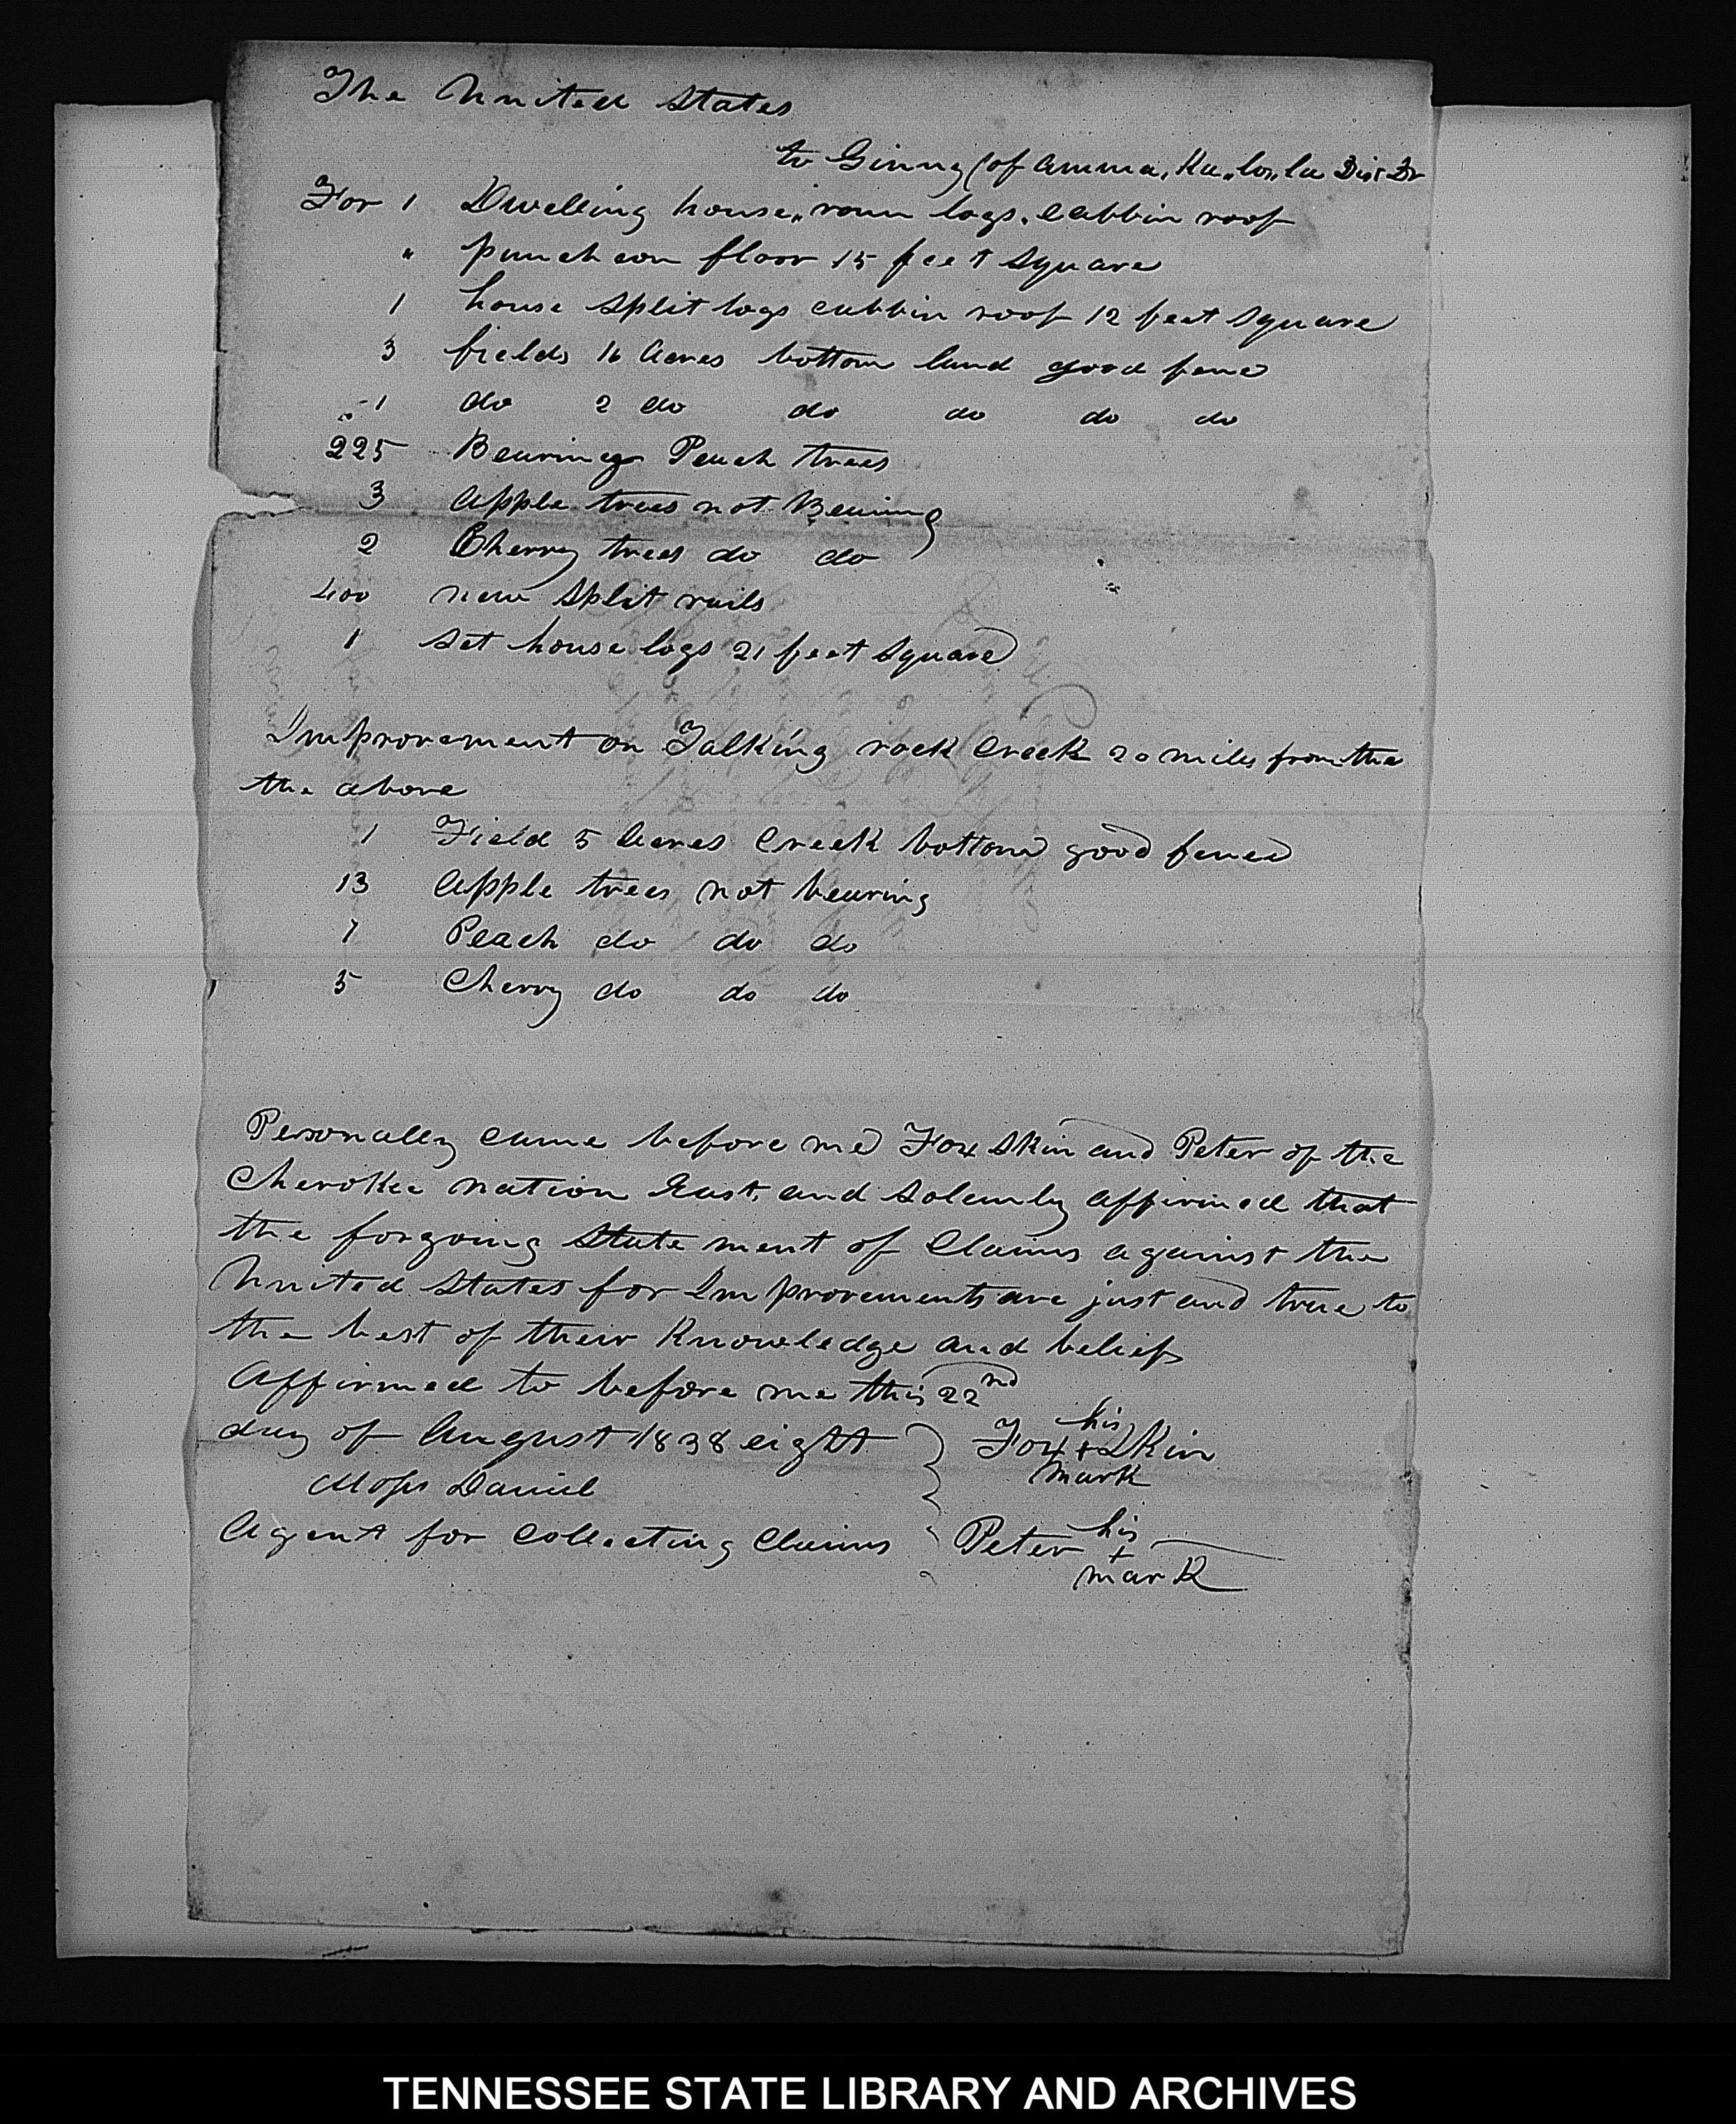 The United States
to Ginny (of Amma, Ku,,lo,,la Dist Dr
For 1 Dwelling house,, roun logs. Cabbin roof
" puncheon floor 15 feet Square
1 house Split logs cabbin roof 12 feet Square
3 fields 16 Acres bottom land good fence
1 do 2 do do do do do
225 Bearing Peach trees
3 Apple trees not Bearing
2 Cherry trees do do
400 new Split rails
1 Set house logs 21 feet Square
Improvement on Talking rock Creek 20 miles from the
the above
1 Field 5 Acres Creek bottom good fence
13 Apple trees not bearing
7 Peach do do do
5 Cherry do do do
Personally came before me Fox Skin and Peter of the
Cherokee nation East, and Solemly affirmed that
the forgoing State ment of Claims against the
United States for Improvements are just and true to
the best of their Knowledge and belief
Affirmed to before me this 22nd
day of August 1838 eight
his
Fox + Skin
mark
Moses Daniel
Agent for Collecting Claims
his
Peter +
mark
TENNESSEE STATE LIBRARY AND ARCHIVES